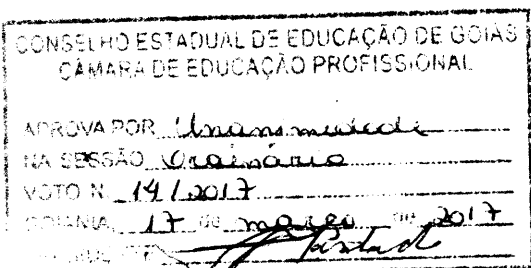 CONSELHO ESTADUAL DE EDUCAÇÃO DE GOIÁS
CÂMARA DE EDUCAÇÃO PROFISSIONAL
APROVA POR Unanimidade
NA SESSÃO Ordinária
VOTO N. 14/2017
GOIÂNIA, 17 de março de 2017